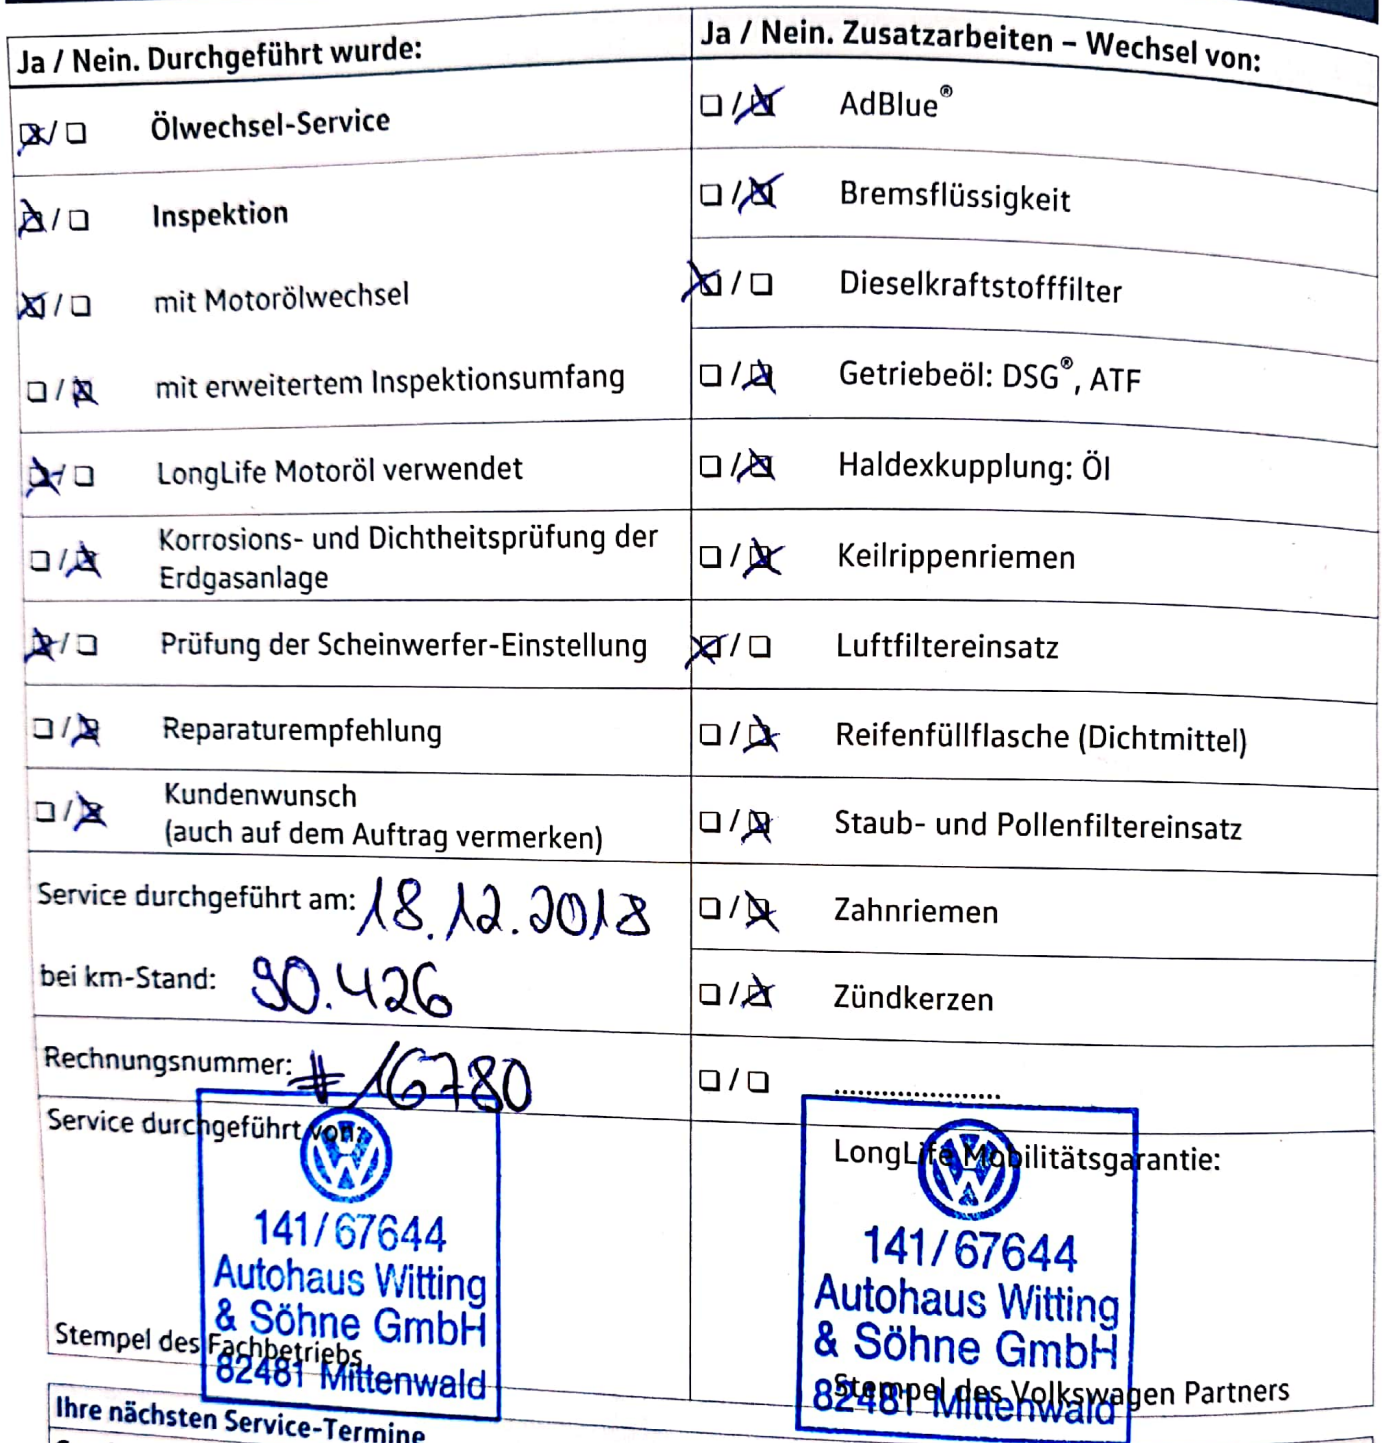 Ja / Nein. Durchgeführt wurde:
Ölwechsel-Service
Inspektion
mit Motorölwechsel
mit erweitertem Inspektionsumfang
LongLife Motoröl verwendet
Korrosions- und Dichtheitsprüfung der
Erdgasanlage
Prüfung der Scheinwerfer-Einstellung
Reparaturempfehlung
Kundenwunsch
(auch auf dem Auftrag vermerken)
Service durchgeführt am: 18.12.2018
bei km-Stand: 90.426
Rechnungsnummer: #16780
Service durchgeführt von:
141/67644
Autohaus Witting
& Söhne GmbH
82481 Mittenwald
Stempel des Fachbetriebs
Ja / Nein. Zusatzarbeiten – Wechsel von:
AdBlue®
Bremsflüssigkeit
Dieselkraftstofffilter
Getriebeöl: DSG®, ATF
Haldexkupplung: Öl
Keilrippenriemen
Luftfiltereinsatz
Reifenfüllflasche (Dichtmittel)
Staub- und Pollenfiltereinsatz
Zahnriemen
Zündkerzen
....................
LongLife Mobilitätsgarantie:
141/67644
Autohaus Witting
& Söhne GmbH
82481 Mittenwald
Stempel des Volkswagen Partners
Ihre nächsten Service-Termine